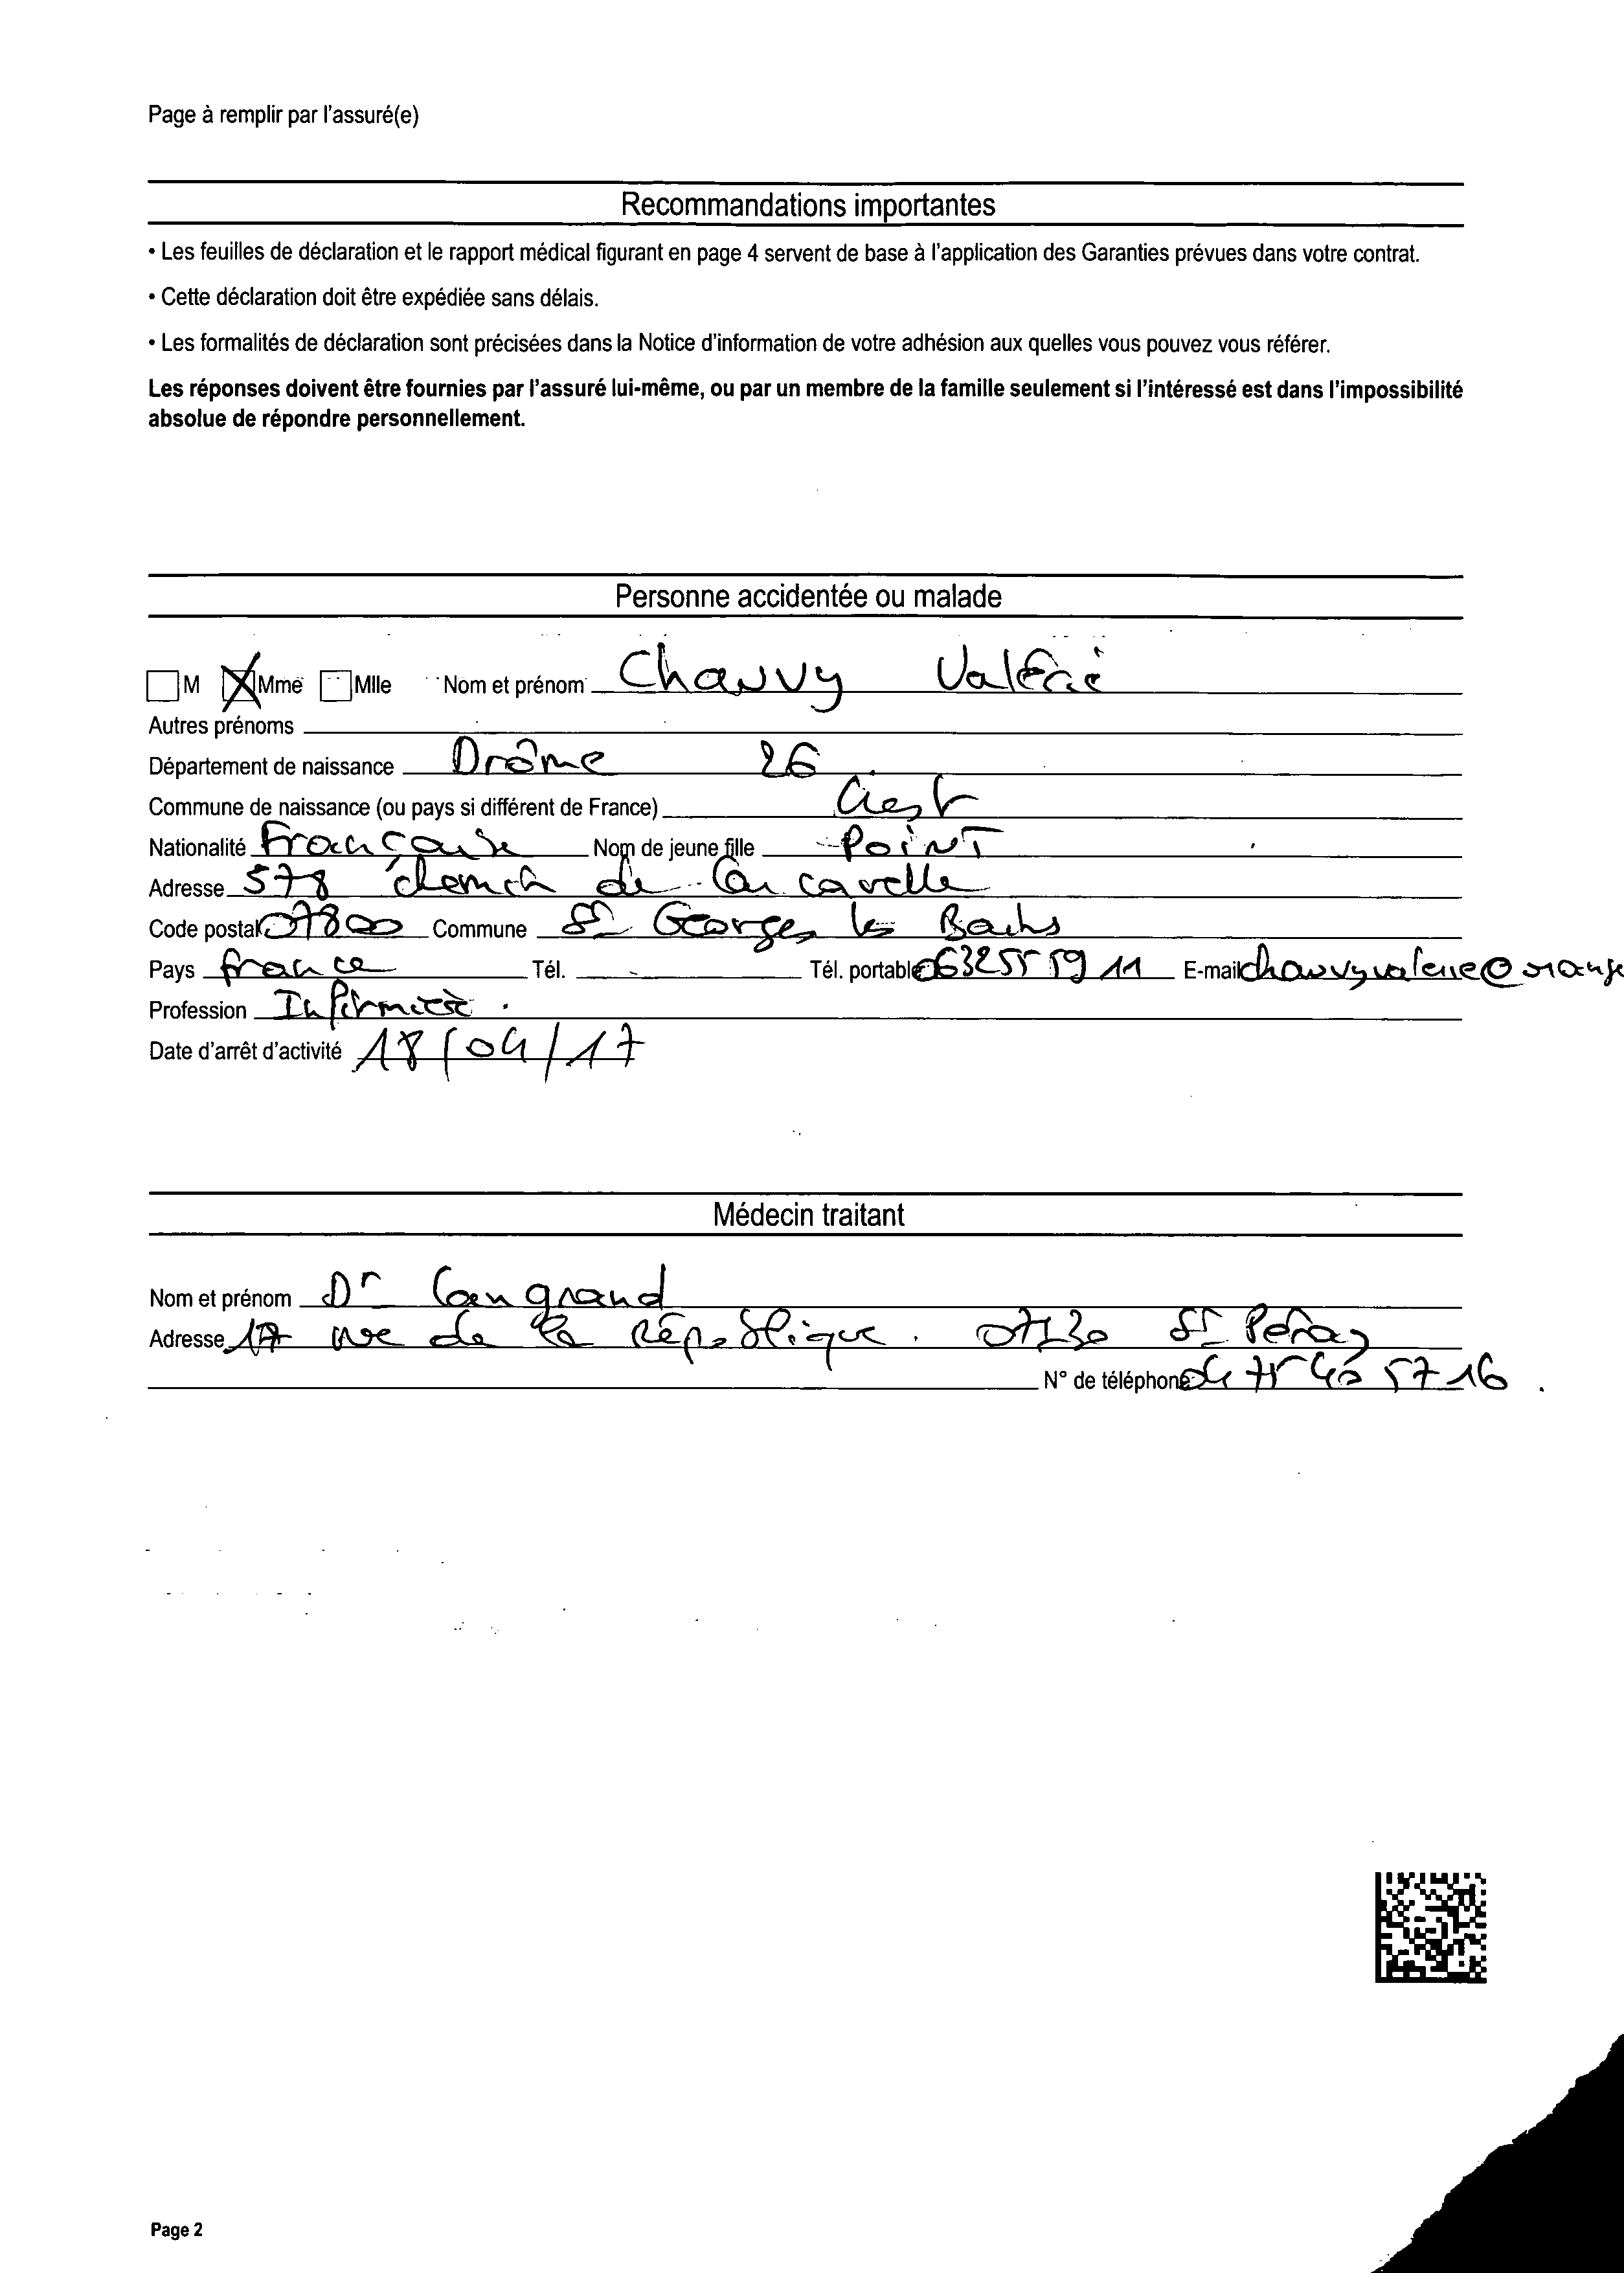 Page à remplir par l'assuré(e)
Recommandations importantes
• Les feuilles de déclaration et le rapport médical figurant en page 4 servent de base à l'application des Garanties prévues dans votre contrat.
• Cette déclaration doit être expédiée sans délais.
• Les formalités de déclaration sont précisées dans la Notice d'information de votre adhésion aux quelles vous pouvez vous référer.
Les réponses doivent être fournies par l'assuré lui-même, ou par un membre de la famille seulement si l'intéressé est dans l'impossibilité
absolue de répondre personnellement.
Personne accidentée ou malade
M Mme Mlle Nom et prénom Chauvy Valérie
Autres prénoms
Département de naissance Drôme 26
Commune de naissance (ou pays si différent de France) Crest
Nationalité Française Nom de jeune fille POINT
Adresse 578 chemin de la cavelle
Code postal 07800 Commune St Georges les Bains
Pays france Tél. Tél. portable 06 32 55 59 11 E-mail chauvyvalerie@orange
Profession Infirmière.
Date d'arrêt d'activité 18/04/17
Médecin traitant
Nom et prénom Dr Langrand
Adresse 17 rue de la République. 07130 St Péray
N° de téléphone 04 75 40 57 16.
Page 2